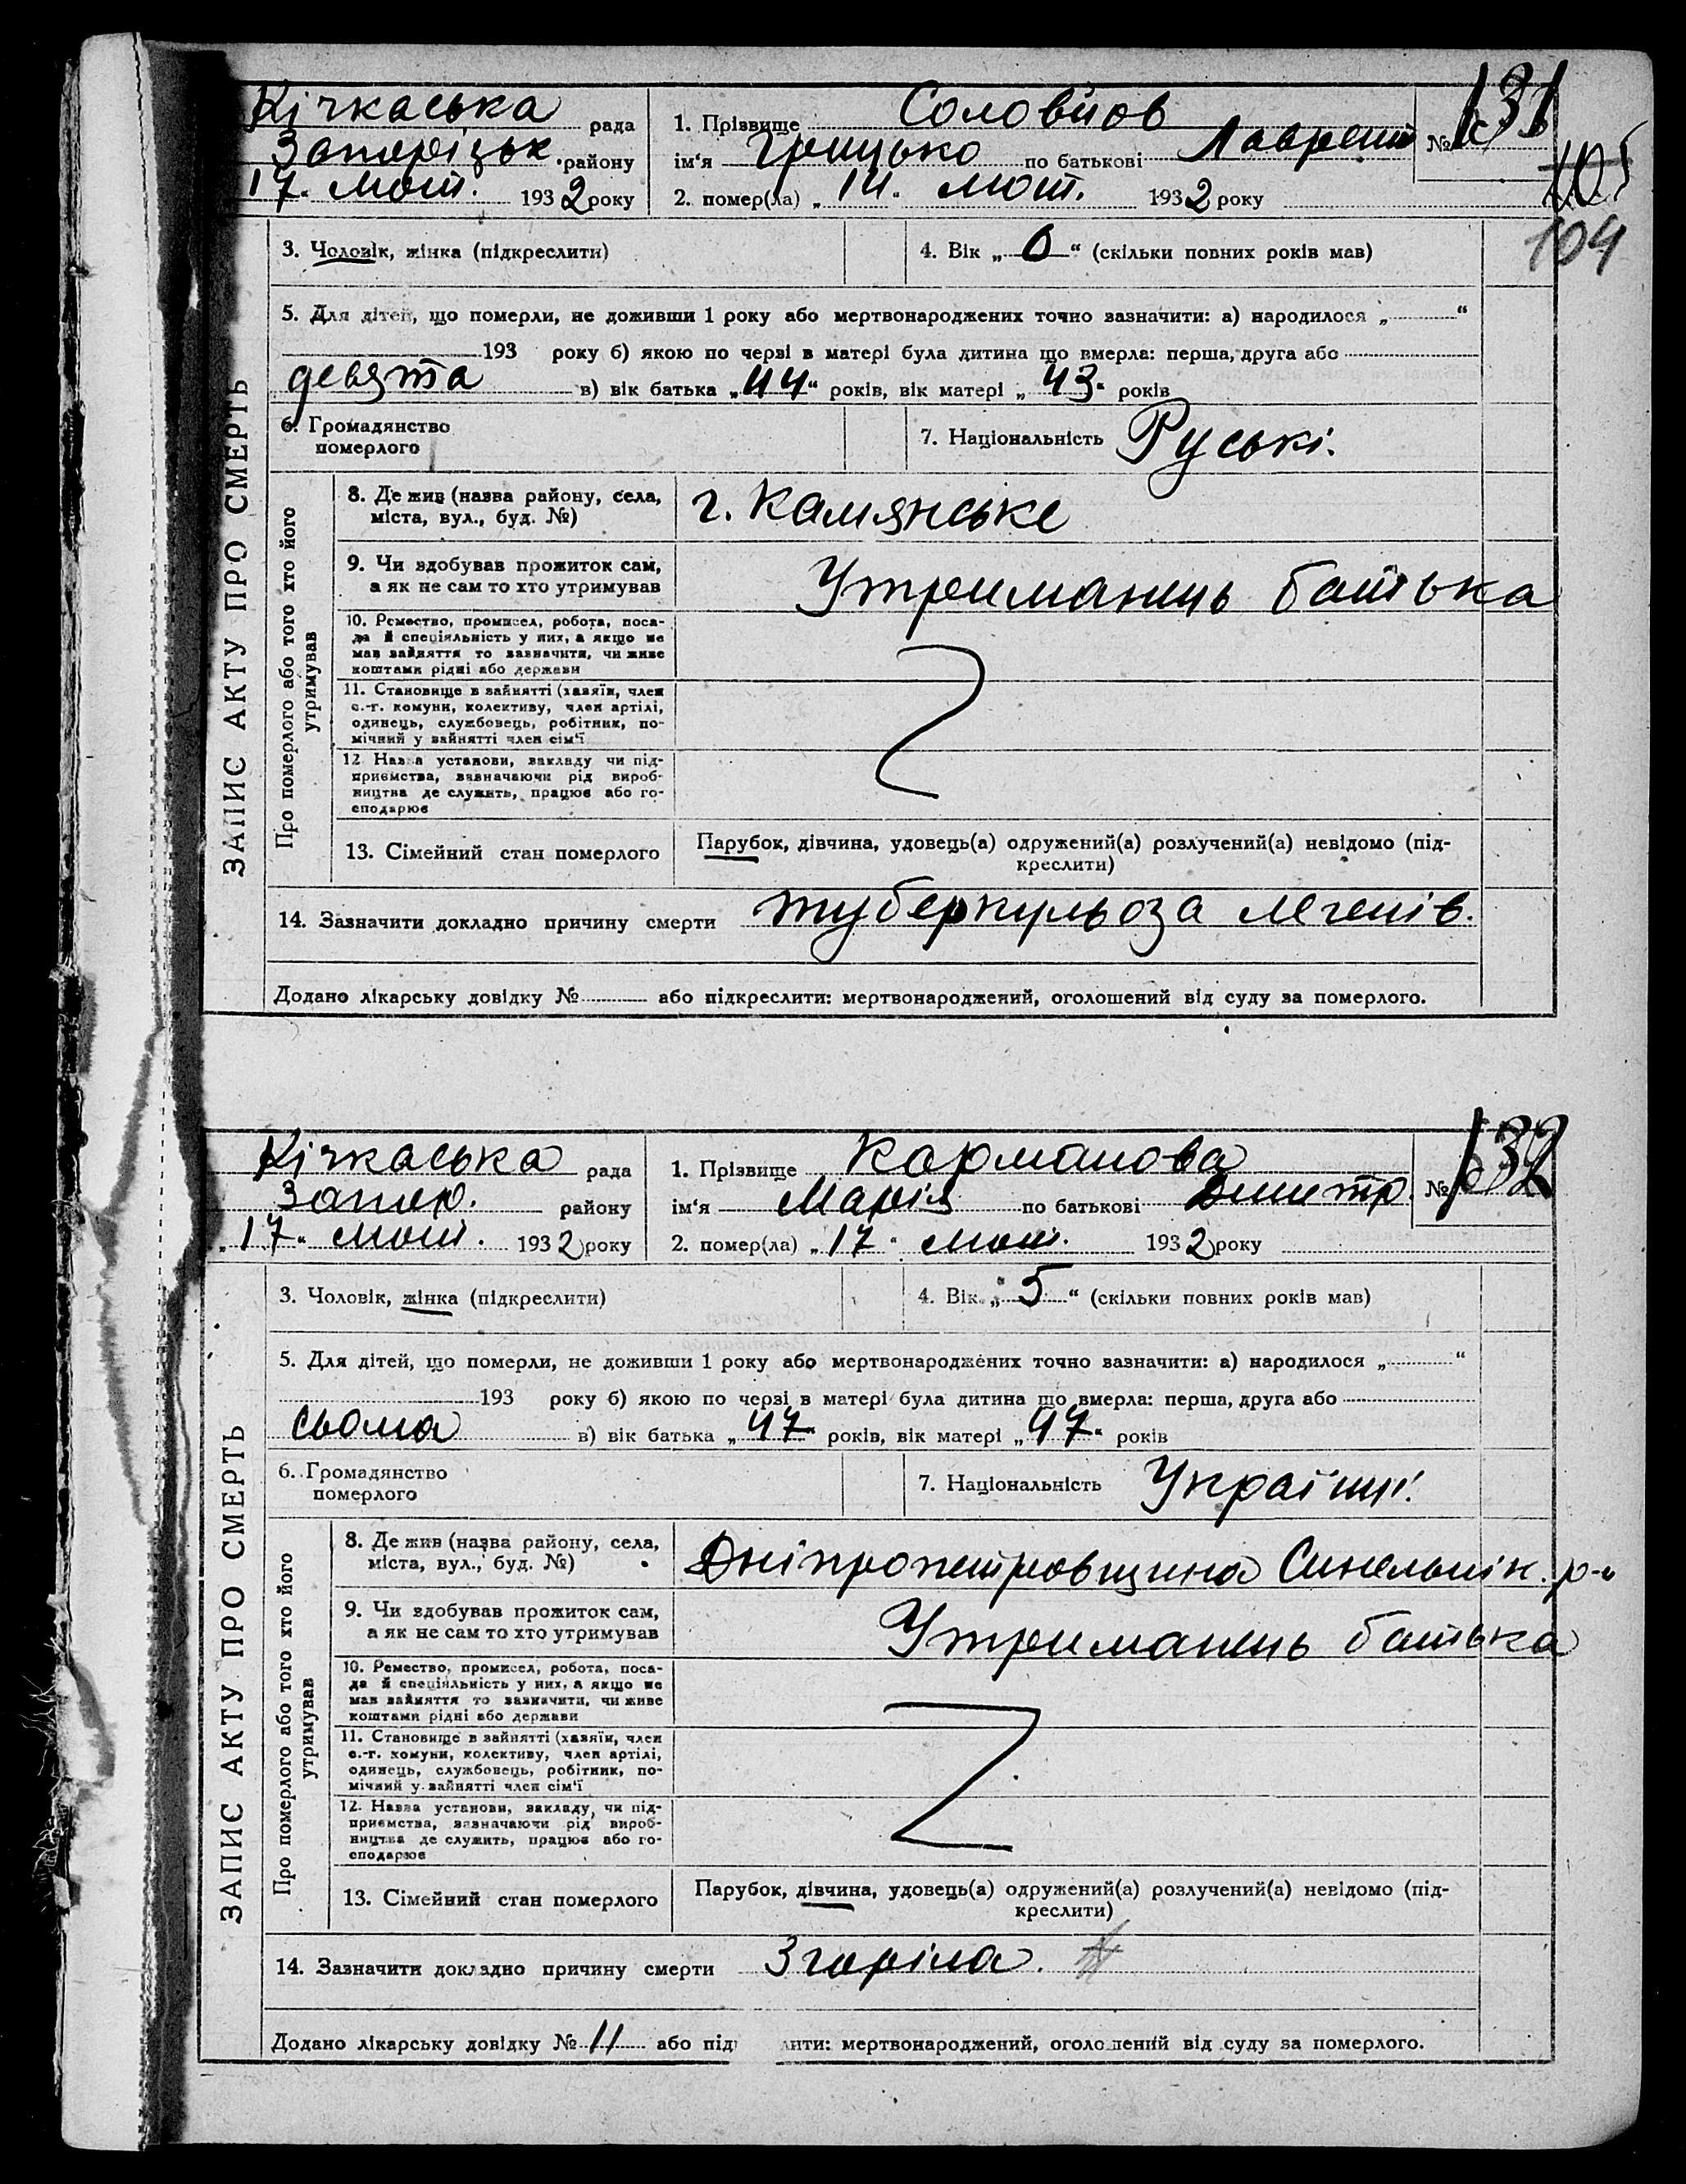 Кічкаська рада
Запоріцьк. району
17. Лют. 1932 року
1. Прізвище Соловйов
ім'я Грицько по батькові Лаврент
№ 131
2. помер(ла) „14. Лют. 1932 року
104
3. Чоловік, жінка (підкреслити)
4. Вік „ 0 “ (скільки повних років мав)
5. Для дітей, що померли, не доживши 1 року або мертвонароджених точно зазначити: а) народилося „ “
193 року б) якою по черзі в матері була дитина що вмерла: перша, друга або
девята в) вік батька „44“ років, вік матері „43“ років
6. Громадянство
померлого
7. Національність Руські.
ЗАПИС АКТУ ПРО СМЕРТЬ
Про померлого або того хто його
утримував
8. Де жив (назва району, села,
міста, вул., буд. №)
г. Камянське
9. Чи здобував прожиток сам,
а як не сам то хто утримував
Утриманець батька
10. Ремество, промисел, робота, поса-
да й спеціяльність у них, а якщо не
мав зайняття то зазначити, чи живе
коштами рідні або держави
11. Становище в зайнятті (хазяїн, член
с.-г. комуни, колективу, член артілі,
одинець, службовець, робітник, по-
мічний у зайнятті член сім'ї
12. Назва установи, закладу чи під-
приємства, зазначаючи рід вироб-
ництва де служить, працює або го-
сподарює
13. Сімейний стан померлого
Парубок, дівчина, удовець(а) одружений(а) розлучений(а) невідомо (під-
креслити)
14. Зазначити докладно причину смерти туберкульоза легенів.
Додано лікарську довідку № або підкреслити: мертвонароджений, оголошений від суду за померлого.
Кічкаська рада
Запор. району
„17“ Лют. 1932 року
1. Прізвище Карманова
ім'я Марія по батькові Дмитр.
№ 132
2. помер(ла) „17“ Лют. 1932 року
3. Чоловік, жінка (підкреслити)
4. Вік „ 5 “ (скільки повних років мав)
5. Для дітей, що померли, не доживши 1 року або мертвонароджених точно зазначити: а) народилося „ “
193 року б) якою по черзі в матері була дитина що вмерла: перша, друга або
сьома в) вік батька „47“ років, вік матері „47“ років
6. Громадянство
померлого
7. Національність Україн.
ЗАПИС АКТУ ПРО СМЕРТЬ
Про померлого або того хто його
утримував
8. Де жив (назва району, села,
міста, вул., буд. №)
Дніпропетровщина Синельнік. р-н
9. Чи здобував прожиток сам,
а як не сам то хто утримував
Утриманець батька
10. Ремество, промисел, робота, поса-
да й спеціяльність у них, а якщо не
мав зайняття то зазначити, чи живе
коштами рідні або держави
11. Становище в зайнятті (хазяїн, член
с.-г. комуни, колективу, член артілі,
одинець, службовець, робітник, по-
мічний у зайнятті член сім'ї
12. Назва установи, закладу, чи під-
приємства, зазначаючи рід вироб-
ництва де служить, працює або го-
сподарює
13. Сімейний стан померлого
Парубок, дівчина, удовець(а) одружений(а) розлучений(а) невідомо (під-
креслити)
14. Зазначити докладно причину смерти Згоріла.
Додано лікарську довідку № 11 або під лити: мертвонароджений, оголошений від суду за померлого.